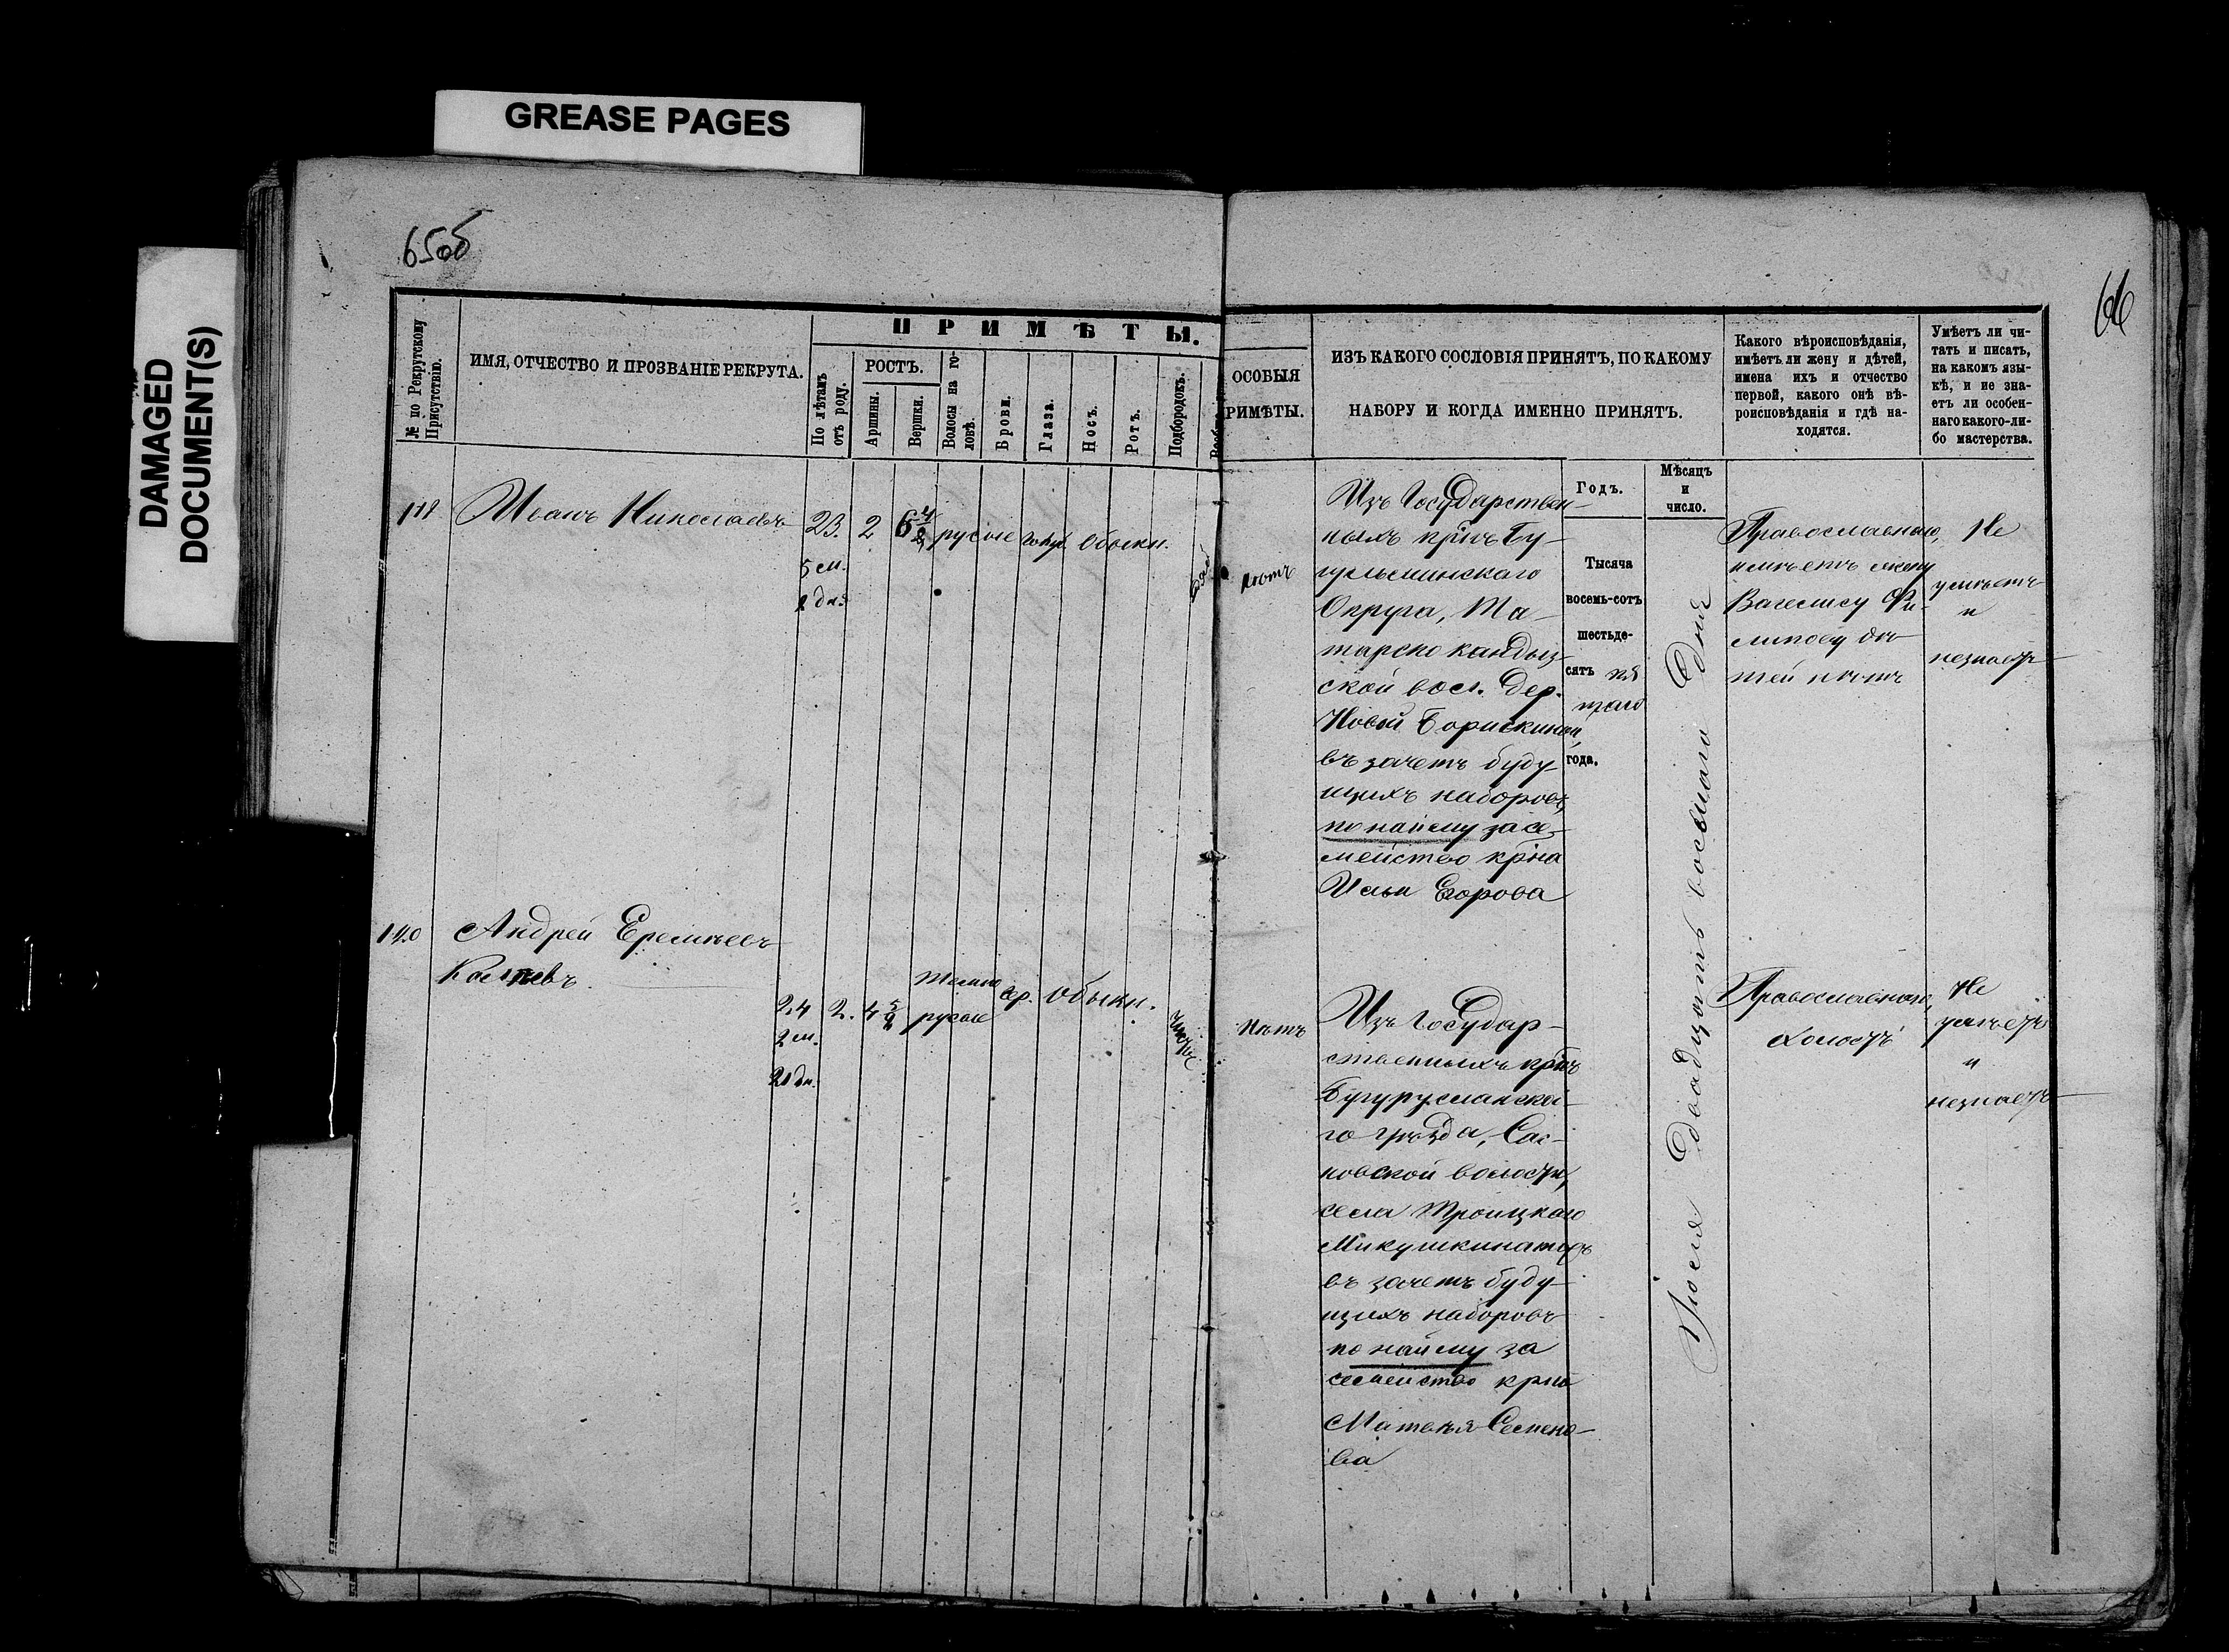 GREASE PAGES
DAMAGED
DOCUMENT(S)
65об
66
№ по Рекрутскому Присутствію.
ИМЯ, ОТЧЕСТВО И ПРОЗВАНІЕ РЕКРУТА.
ПРИМѢТЫ.
По лѣтамъ отъ роду.
РОСТЪ.
Аршины.
Вершки.
Волосы на головѣ.
Брови.
Глаза.
Носъ.
Ротъ.
Подбородокъ.
ОСОБЫЯ
РИМѢТЫ.
ИЗЪ КАКОГО СОСЛОВІЯ ПРИНЯТЪ, ПО КАКОМУ
НАБОРУ И КОГДА ИМЕННО ПРИНЯТЪ.
Какого вѣроисповѣданія,
имѣетъ ли жену и дѣтей,
имена ихъ и отчество
первой, какого онѣ вѣ-
роисповѣданія и гдѣ на-
ходятся.
Умѣетъ ли чи-
тать и писать,
на какомъ язы-
кѣ, и не зна-
етъ ли особен-
наго какого-ли-
бо мастерства.
Годъ.
Мѣсяцъ
и
число.
Иванъ Николаевъ
23.
5 м.
2
русые
голуб.
обыкн.
нѣтъ
Изъ Государствен-
ныхъ крнъ Бу-
гульминскаго
Округа, Та-
тарско кандыз-
ской вол. дер.
Новой Борискиной,
въ зачетъ буду-
щихъ наборовъ,
по найму за се-
мейство крна
Ильи Егорова
Тысяча
восемь-сотъ
шестьде-
сятъ пя
таго
года.
Іюля двадцать восьмаго дня
Православнаго,
имѣетъ жену
Василису Фи-
липову дѣ-
тей нѣтъ
Не
умѣетъ
и
незнаетъ
120
Андрей Еремѣевъ
24
2 м.
21 дн.
2.
4 5/8
темно
русые
сер.
обыкн.
нѣтъ
Изъ Государ-
ственныхъ крнъ
Бугурусланска-
го уѣзда, Сос-
новской волости,
села Троицкаго
Микушкина тожъ
въ зачетъ буду-
щихъ наборовъ
по найму за
семейство крна
Матвѣя Семено-
ва
Православнаго,
холостъ
Не
умѣетъ
и
незнаетъ